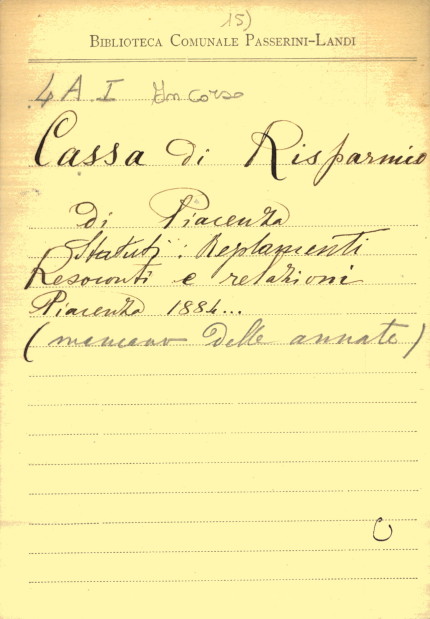 15)
BIBLIOTECA COMUNALE PASSERINI-LANDI
4 A. I In corso
Cassa di Risparmio
di Piacenza
Statuti: Regolamenti
Resoconti e relazioni
Piacenza 1884...
(mancano delle annate)
C